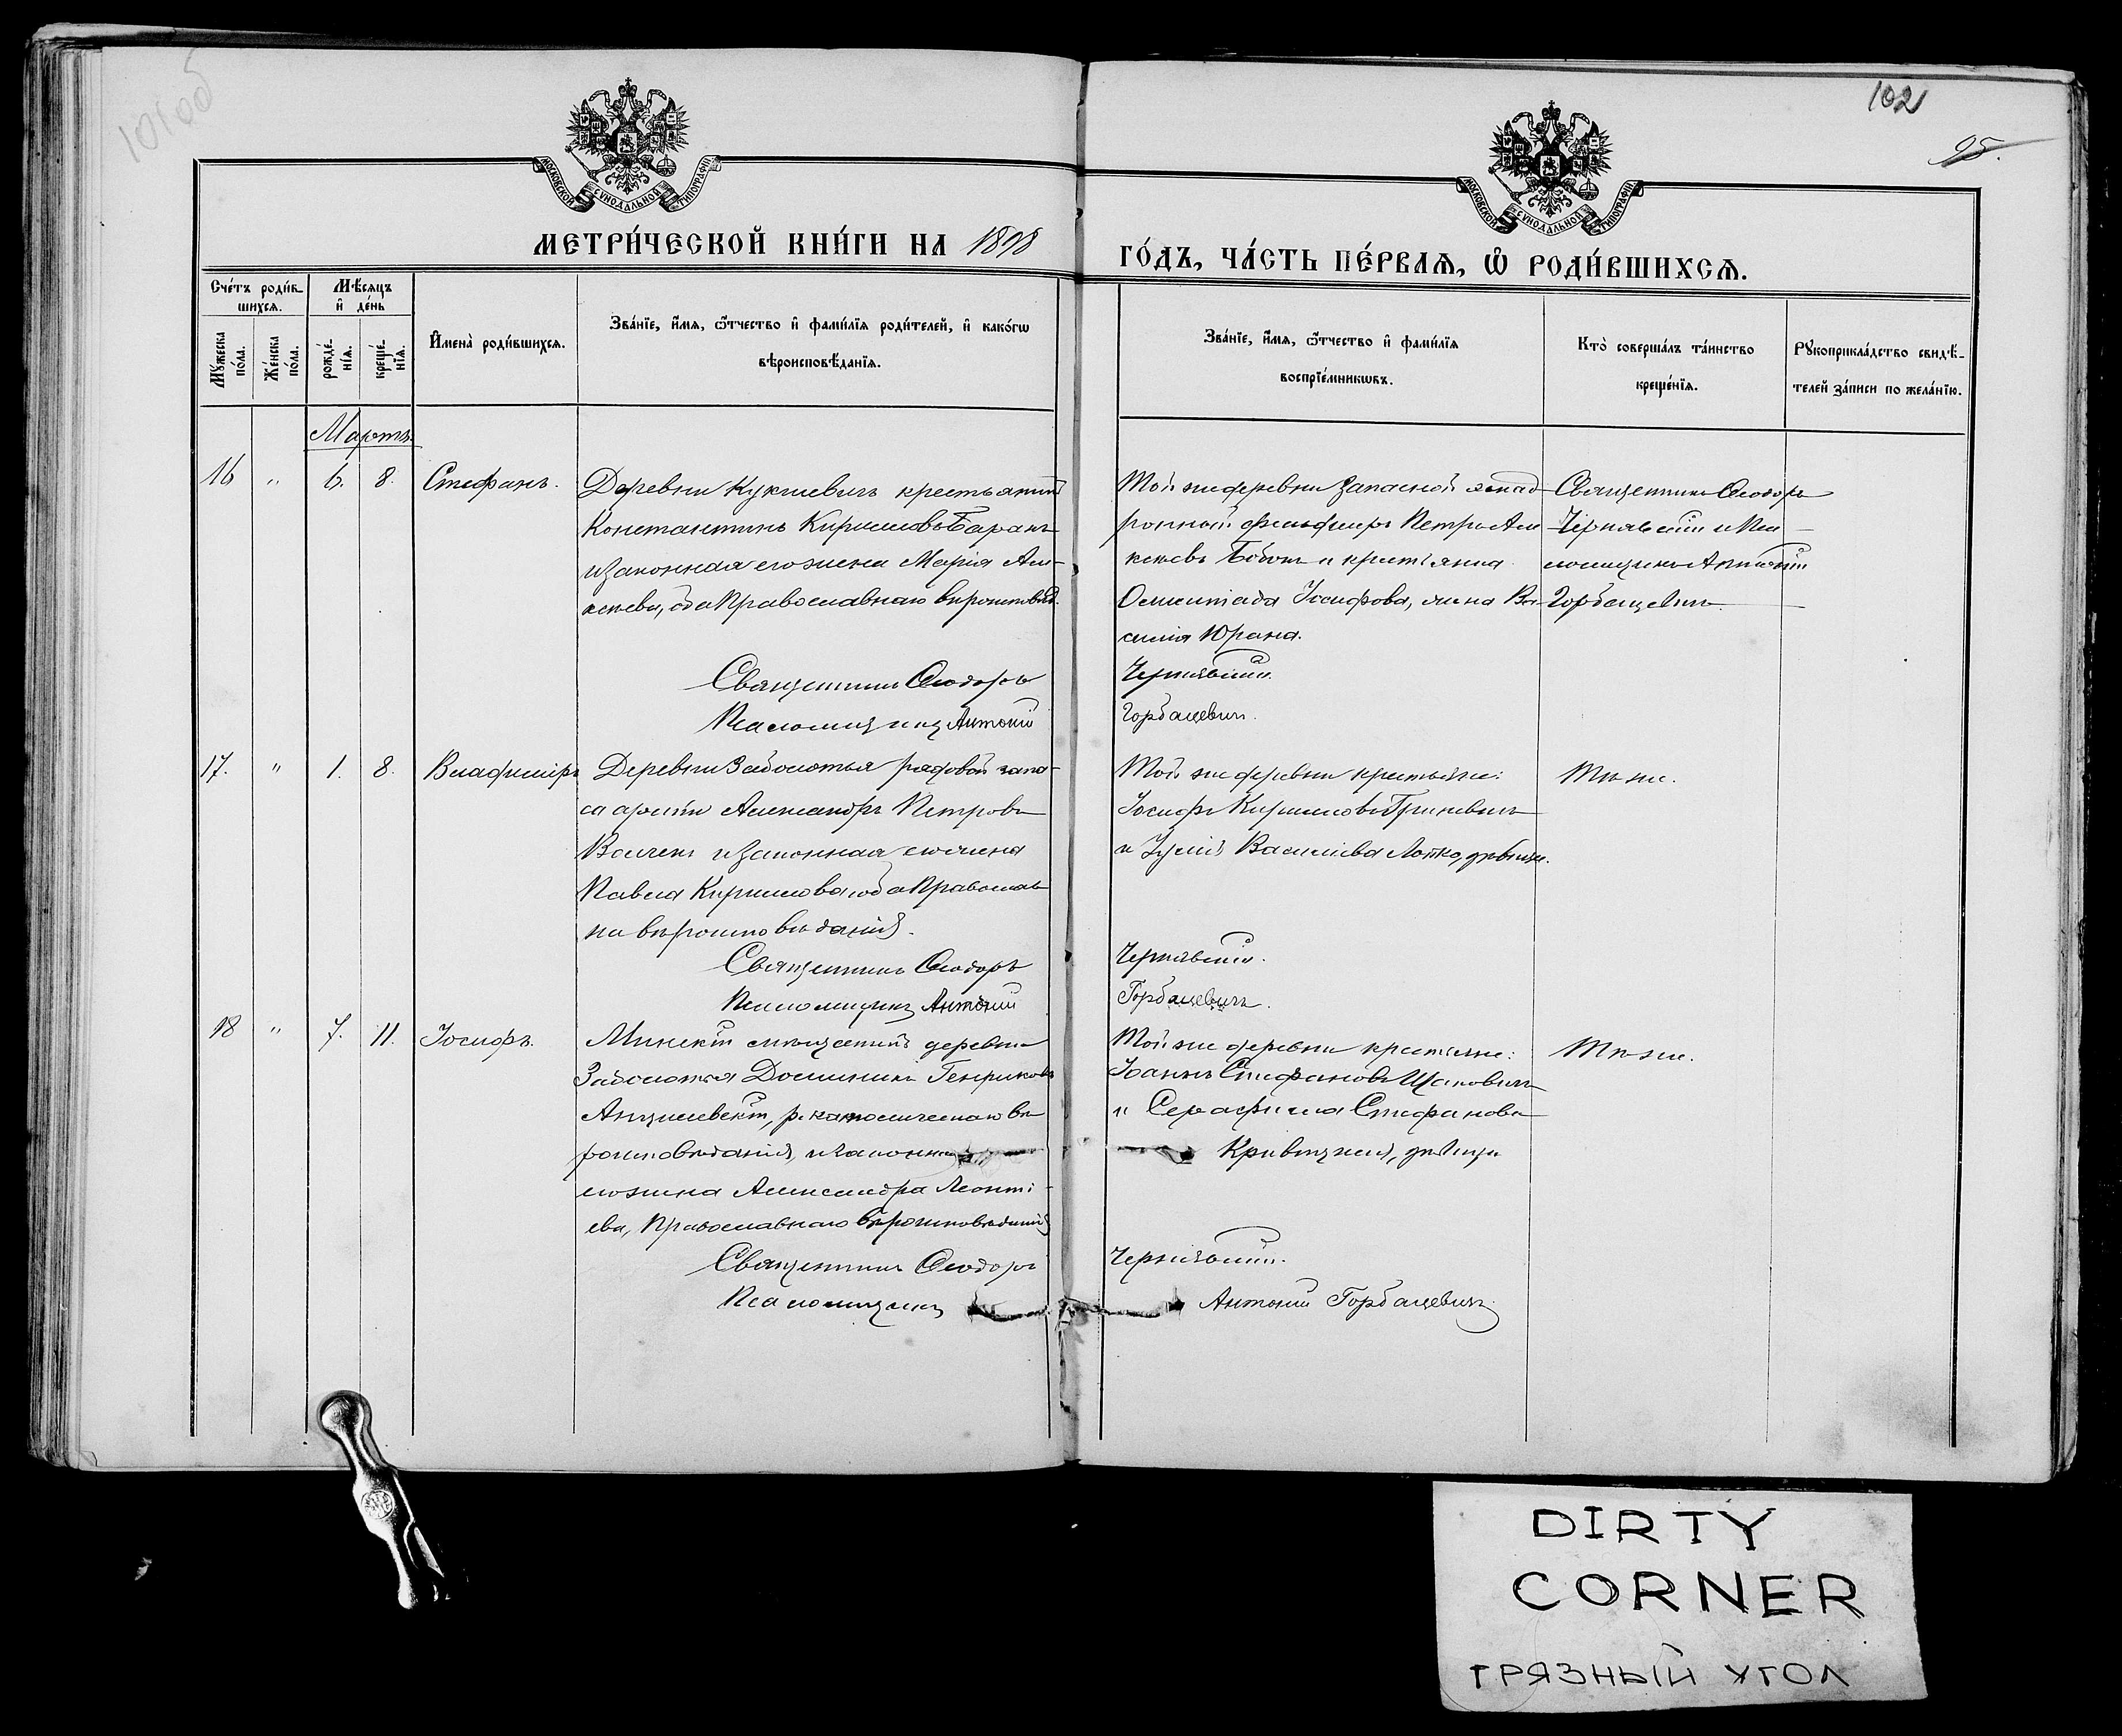 101об
102
95.
МОСКОВСКОЙ СѴНОДАЛЬНОЙ ТИПОГРАФІИ
МОСКОВСКОЙ СѴНОДАЛЬНОЙ ТИПОГРАФІИ
МЕТРИ́ЧЕСКОЙ КНИ́ГИ НА 1898
ГО́ДЪ, ЧА́СТЬ ПЕ́РВАѦ, Ѡ҆ РОДИ́ВШИХСѦ.
Сче́тъ роди́в-
шихсѧ.
Мѣ́сѧцъ
и҆ де́нь
Мꙋ́жеска
по́ла.
Же́нска
по́ла.
рожде́-
нїѧ.
креще́-
нїѧ.
И҆мена̀ роди́вшихсѧ.
Зва́нїе, и҆́мѧ, ѻ҆́тчество и҆ фами́лїѧ роди́телей, и҆ како́гѡ
вѣроисповѣ́данїѧ.
Зва́нїе, и҆́мѧ, ѻ҆́тчество и҆ фами́лїѧ
воспрїе́мникѡвъ.
Кто̀ соверша́лъ та́инство
креще́нїѧ.
Рꙋкоприкла́дство свидѣ́-
телей за́писи по жела́нїю.
Мартъ.
16 " 6. 8. Стефанъ.
Деревни Кукшевичъ крестьянинъ
Константинъ Кирилловъ Баранъ
и законная его жена Марія Але-
ксѣева, оба Православнаго вѣроисповѣд.
Священникъ Ѳеодоръ
Псаломщикъ Антоній
Той же деревни запасной эскад-
ронный фельдшеръ Петръ Але-
ксѣевъ Бобокъ и крестьянка
Іосифова, жена Ва-
силія Юрана.
Чернявскій.
Горбацевич.
Священникъ Ѳеодоръ
Чернявскій и Пса-
ломщикъ Антоній
Горбацевичъ.
17. " 1. 8. Владиміръ
Деревни Заболотья рядовой запа-
са арміи Александръ Петровъ
Волчекъ и законная его жена
Павла Кириллова, оба Православ-
на вѣроисповѣданія.
Священникъ Ѳеодоръ
Псаломщикъ Антоній
Той же деревни крестьяне:
Іосифъ Кирилловъ Гриневичъ
и Васильева дѣвица.
Чернявскій.
Горбацевичъ.
Тѣ же.
18 " 7. 11. Іосифъ.
Минскій мѣщанинъ деревни
Заболотья Доминикъ Генриковъ
р. католическаго вѣ-
роисповѣданія, и законная
его жена Александра Леонтi-
ева, Православнаго вѣроисповѣданія
Священникъ Ѳеодоръ
Псаломщикъ
Той же деревни крестьяне:
Іоаннъ Стефановъ
и Серафима Стефанова
дѣвица
Чернявскій.
Антоній Горбацевичъ.
Тѣ же.
DIRTY
CORNER
ГРЯЗНЫЙ УГОЛ